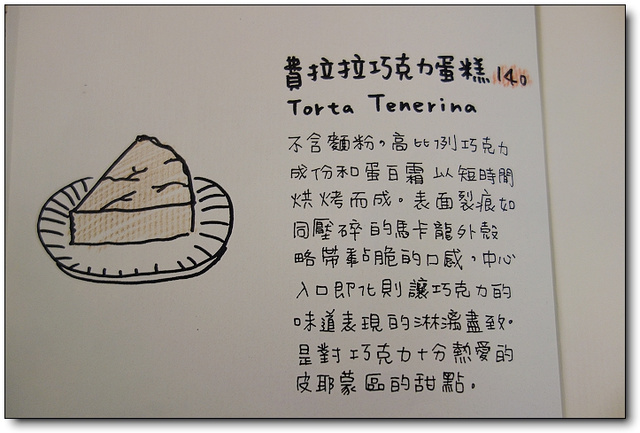 費拉拉巧克力蛋糕 140
Torta Tenerina
不含麵粉，高比例巧克力
成份和蛋白霜 以短時間
烘烤而成。表面裂痕如
同壓碎的馬卡龍外殼
略帶黏脆的口感，中心
入口即化則讓巧克力的
味道表現的淋漓盡致。
是對巧克力十分熱愛的
皮耶蒙區的甜點。